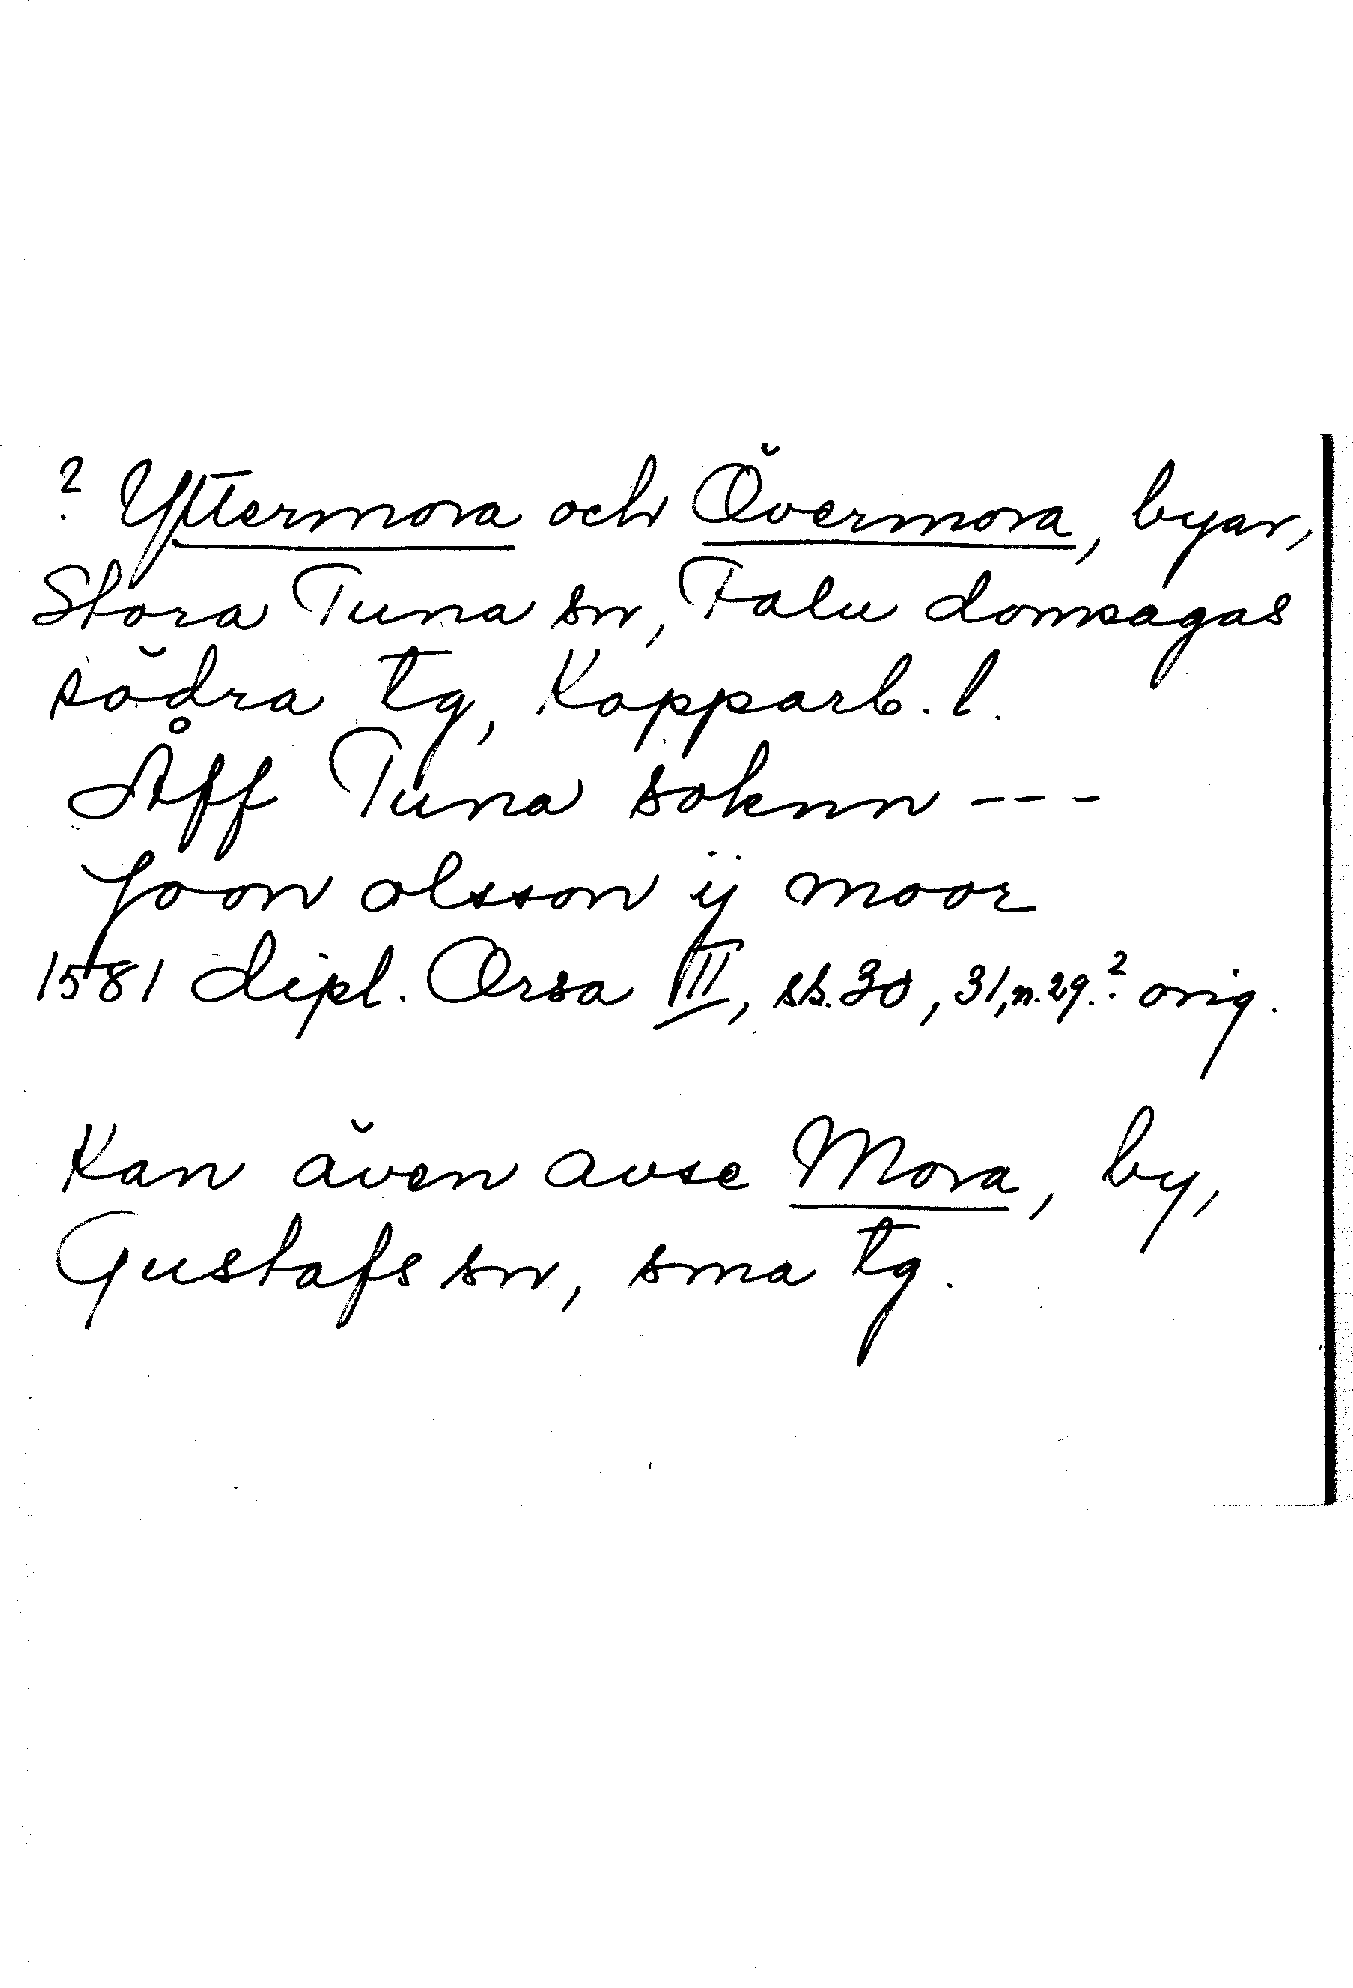 ? Yttermora och Övermora, byar,
Stora Tuna sn, Falu domsagas
södra tg, Kopparb. l.
Åff Tuna soknn ---
Joon olsson ÿ moor
1581 dipl. Orsa III, ss. 30, 31, n. 29.? orig.
Kan även avse Mora, by,
Gustafs sn, sma tg.